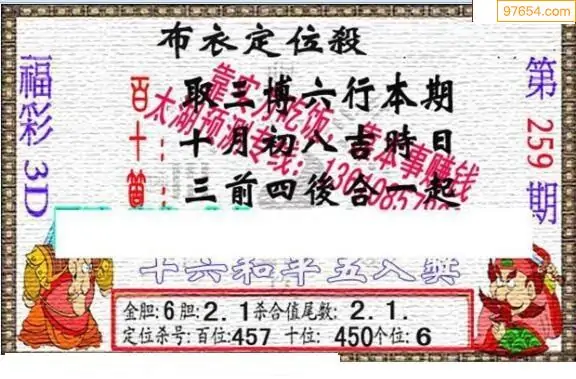 97654.com
布衣定位殺
福彩3D
第259期
百：取三博六行本期
十：十月初八吉時日
三前四後合一起
靠实力吃饭，靠本事赚钱
太湖预测专线：
十六和半五入奖
金胆:6胆:2.1杀合值尾数:2.1.
定位杀号:百位:457 十位:450个位:6